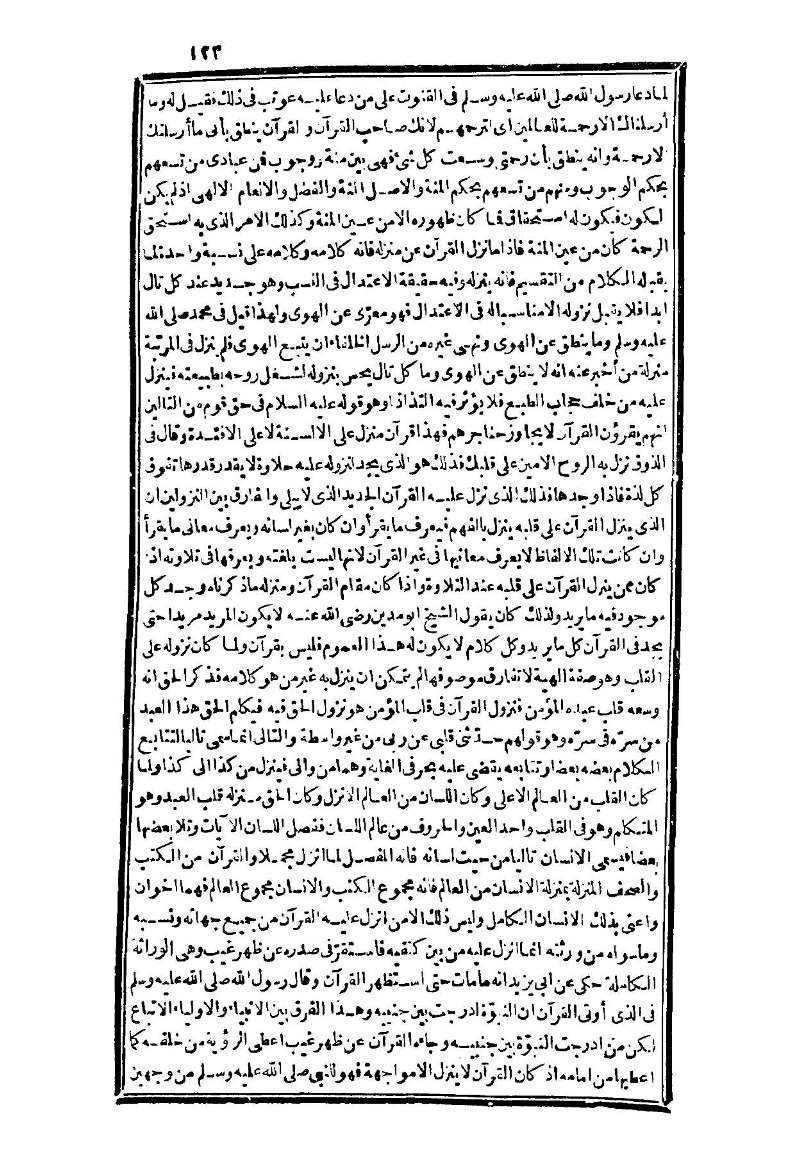 ١٢٣
لما دعا رسول الله صلى الله عليه وسلم فى القنوت على من دعا عليه عوتب فى ذلك فقيل له وما
أرسلناك الا رحمة للعالمين أى لترحمهم لانك صاحب القرآن والقرآن ينطق بأنى ما أرسلتك
الا رحمة وانه ينطق بأن رحمتى وسعت كل شئ فهى بين منة ووجوب فمن عبادى من تسعهم
بحكم الوجوب ومنهم من تسعهم بحكم المنة والاصل المنة والفضل والانعام الالهى اذ لم يكن
الكون فيكون له استحقاق فما كان ظهوره الا من عين المنة وكذلك الامر الذى به استحق
الرحمة كان من عين المنة فاذا ما نزل القرآن عن منزله فانه كلامه وكلامه على نسبة واحدة لما
يقبله الكلام من التقسيم فانه ينزله وفيه حقيقة الاعتدال فى النسب وهو جديد عند كل تال
ابدا فلا يقبل نزوله الا مناسبا له فى الاعتدال فهو معرّى عن الهوى ولهذا قيل فى محمد صلى الله
عليه وسلم وما ينطق عن الهوى ونهى غيره من الرسل الخلفاء ان يتبع الهوى فلم ينزل فى المرتبة
منزلة من أخبر عنه انه لا ينطق عن الهوى وما كل تال يحس بنزوله لشغل روحه بطبيعته فينزل
عليه من خلف حجاب الطبع فلا يؤثر فيه التذاذا وهو قوله عليه السلام فى حق قوم من التالين
انهم يقرؤن القرآن لا يجاوز حناجرهم فهذا قرآن منزل على الالسنة لا على الافئدة وقال فى
الذوق نزل به الروح الامين على قلبك فذلك هو الذى يجد لنزوله عليه حلاوة لا يقدر قدرها تفوق
كل لذة فاذا وجدها فذلك الذى نزل عليه القرآن الجديد الذى لا يبلى والفارق بين النزولين ان
الذى ينزل القرآن على قلبه ينزل بالفهم فيعرف ما يقرأ وان كان بغير لسانه ويعرف معانى ما يقرأ
وان كانت تلك الالفاظ لا يعرف معانيها فى غير القرآن لانها ليست بلغته ويعرفها فى تلاوته اذا
كان ممن ينزل القرآن على قلبه عند التلاوة واذا كان مقام القرآن ومنزله ما ذكرناه وجد كل
موجود فيه ما يريد ولذلك كان يقول الشيخ ابو مدين رضى الله عنه لا يكون المريد مريدا حتى
يجد فى القرآن كل ما يريد وكل كلام لا يكون له هذا العموم فليس بقرآن ولما كان نزوله على
القلب وهو صفة الهية لا تفارق موصوفها لم يتمكن ان ينزل به غير من هو كلامه فذكر الحق انه
وسعه قلب عبده المؤمن فنزول القرآن فى قلب المؤمن هو نزول الحق فيه فيكلم الحق هذا العبد
من سرّه فى سرّه وهو قولهم حدثنى قلبى عن ربى من غير واسطة والتالى انما سمى تاليا لتتابع
الكلام بعضه بعضا وتتابعه يقضى عليه بحرفى الغاية وهما من والى فينزل من كذا الى كذا ولما
كان القلب من العالم الاعلى وكان اللسان من العالم الانزل وكان الحق منزله قلب العبد وهو
المتكلم وهو فى القلب واحد العين والحروف من عالم اللسان ففصل اللسان الآيات وتلا بعضها
بعضا فيسمى الانسان تاليا من حيث لسانه فانه المفصل لما انزل مجملا والقرآن من الكتب
والصحف المنزلة بمنزلة الانسان من العالم فانه مجموع الكتب والانسان مجموع العالم فهما اخوان
واعنى بذلك الانسان الكامل وليس ذلك الا من انزل عليه القرآن من جميع جهاته ونسبه
وما سواه من ورثته انما انزل عليه من بين كتفيه فاستقرّ فى صدره عن ظهر غيب وهى الوراثة
الكاملة حكى عن ابى يزيد انه ما مات حتى استظهر القرآن وقال رسول الله صلى الله عليه وسلم
فى الذى أوتى القرآن ان النبوّة ادرجت بين جنبيه وهذا الفرق بين الانبياء والاولياء الاتباع
لكن من ادرجت النبوّة بين جنبيه وجاءه القرآن عن ظهر غيب اعطى الرؤية من خلفه كما
اعطيها من امامه اذ كان القرآن لا ينزل الا مواجهة فهو للنبى صلى الله عليه وسلم من وجهين